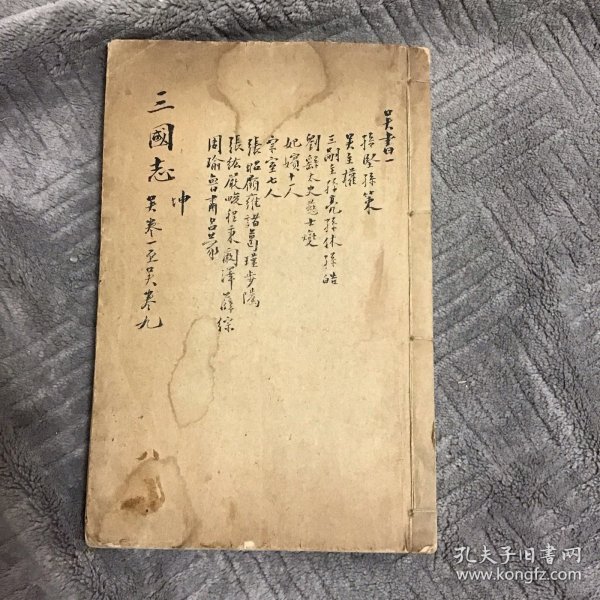 吴書一
孫堅孫策
吴主權
三嗣主孫亮孫休孫皓
劉繇太史慈士燮
妃嬪十人
宗室七人
張昭顧雍諸葛瑾步隲
張紘嚴畯程秉闞澤薛綜
周瑜魯肅吕蒙
三國志
坤
吴卷一至吴卷九
孔夫子旧书网
www.kongfz.com